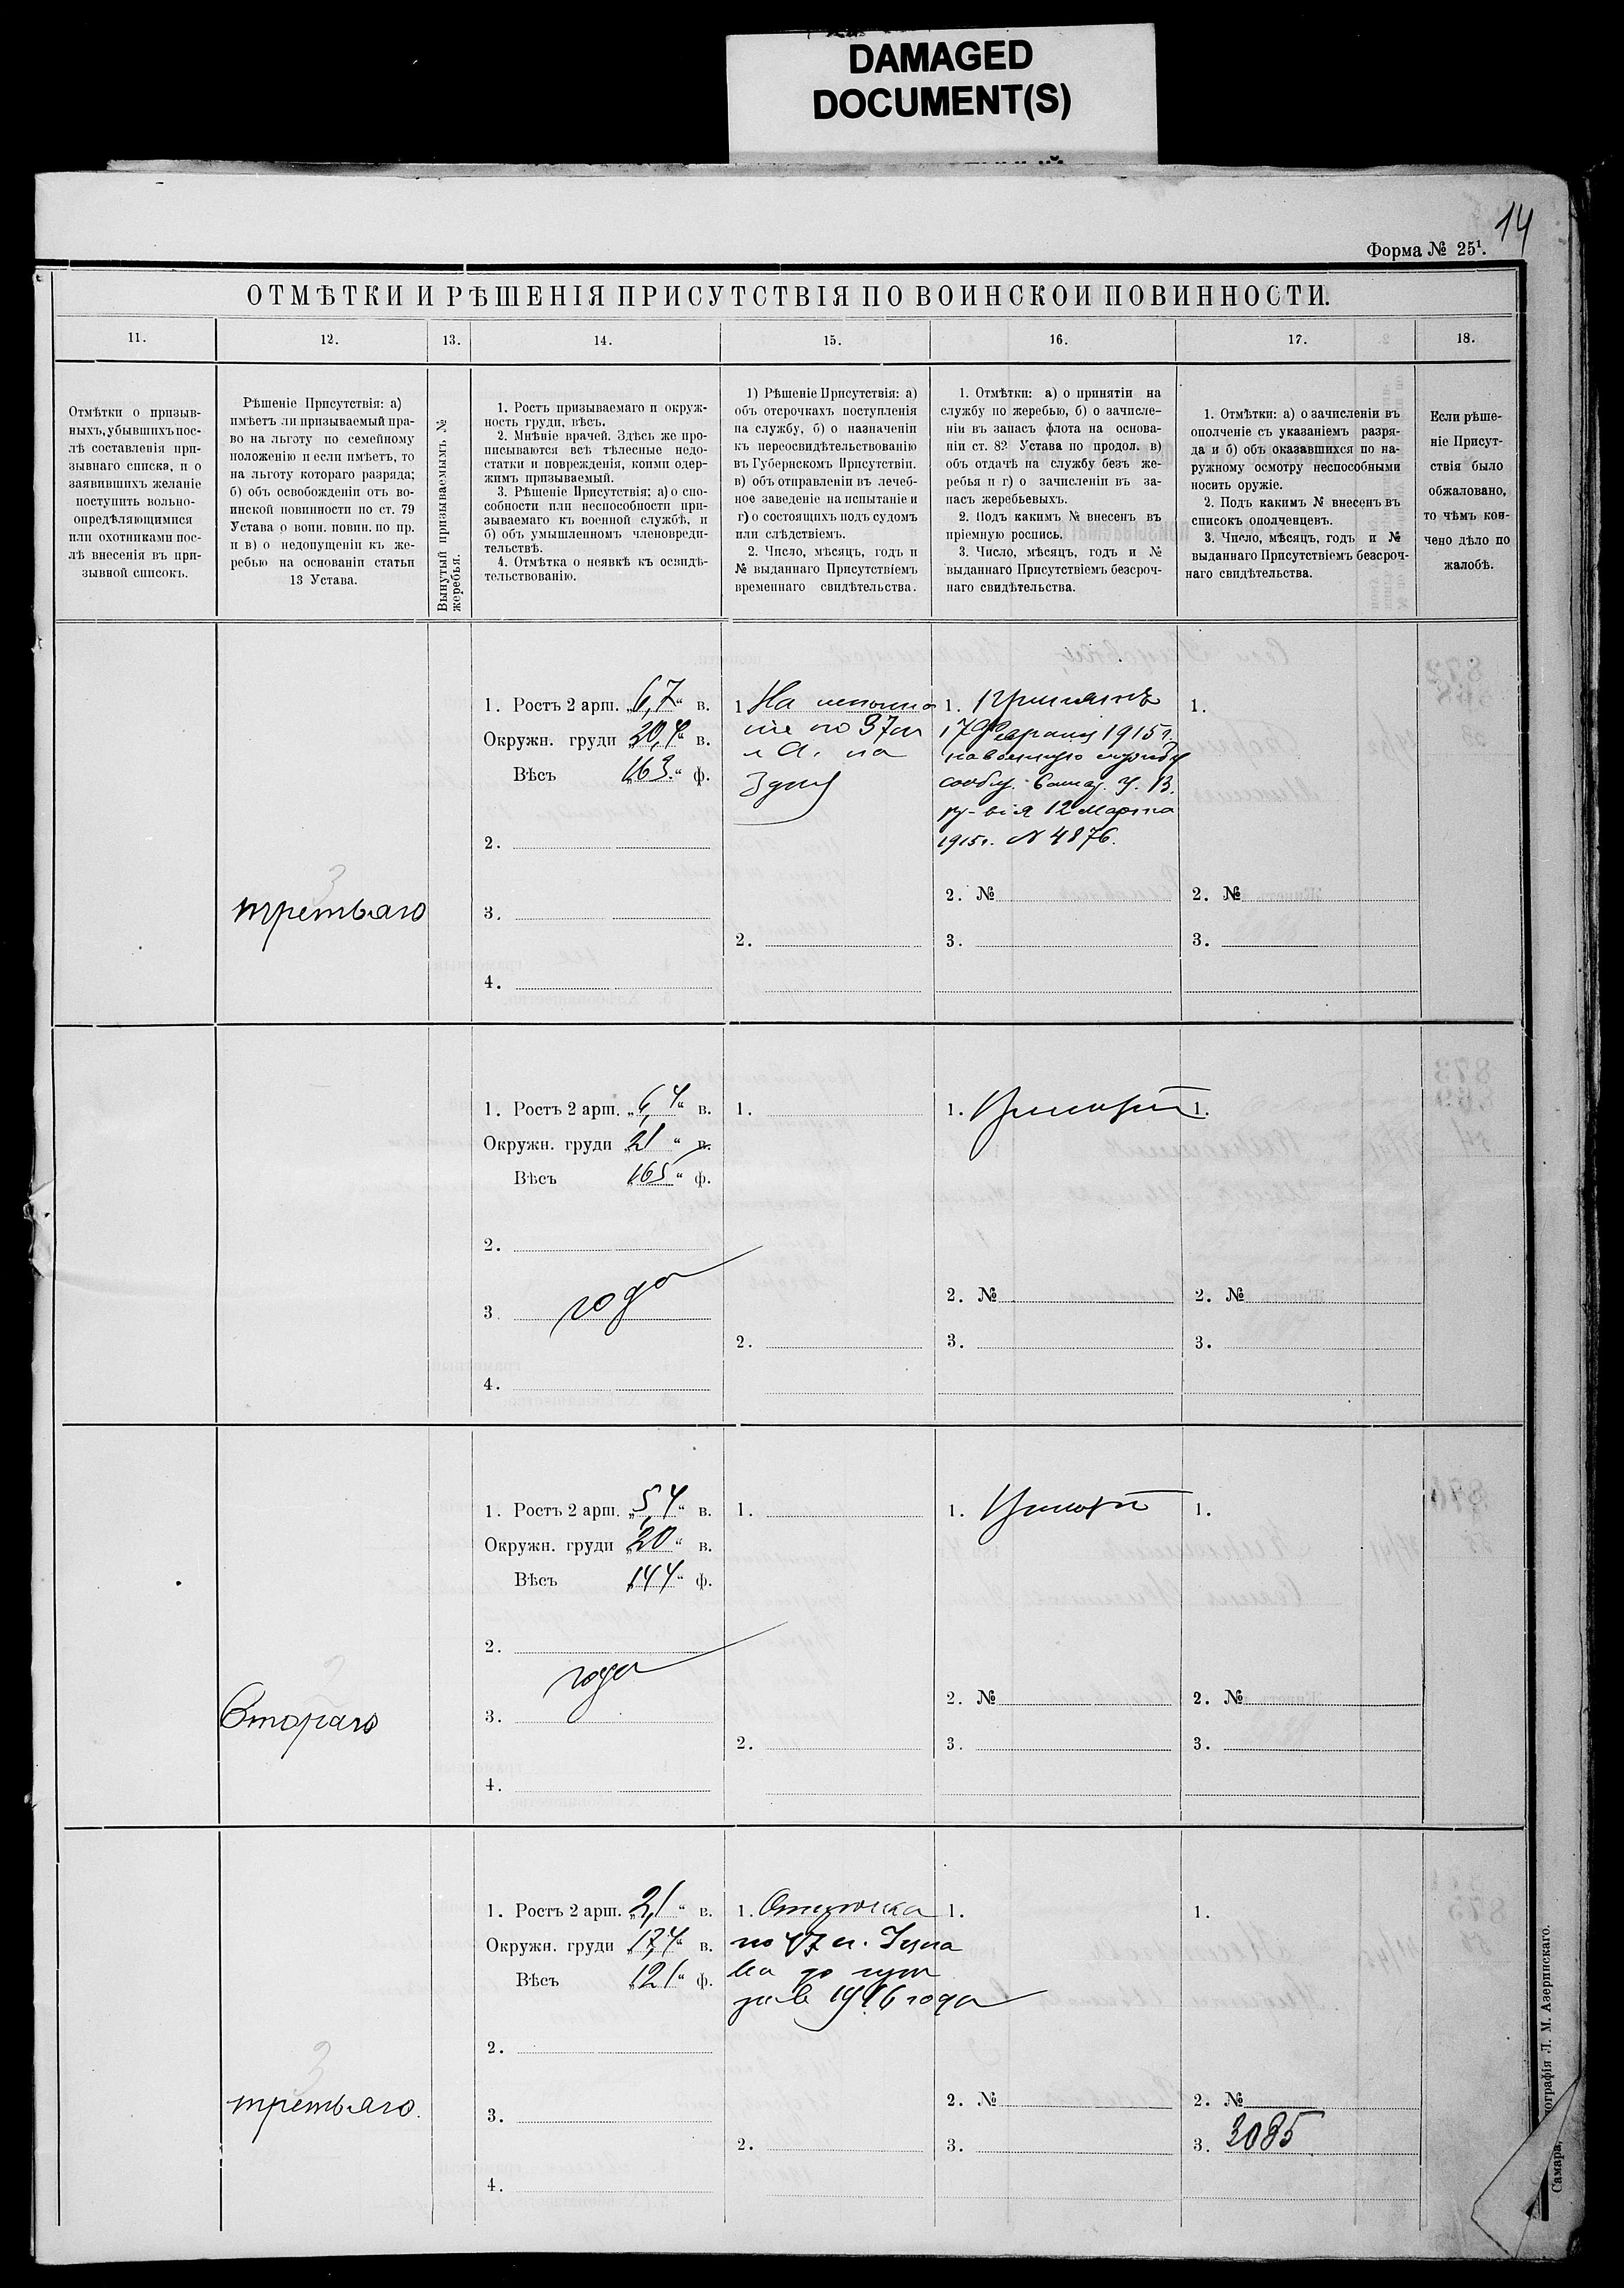 DAMAGED
DOCUMENT(S)
14
Форма № 25¹.
ОТМѢТКИ И РѢШЕНІЯ ПРИСУТСТВІЯ ПО ВОИНСКОИ ПОВИННОСТИ.
11. 12. 13. 14. 15. 16. 17. 18.
Отмѣтки о призыв-
ныхъ, убывшихъ пос-
лѣ составленія при-
зывнаго списка, и о
заявившихъ желаніе
поступить вольно-
опредѣляющимися
или охотниками пос-
лѣ внесенія въ при-
зывной списокъ.
Рѣшеніе Присутствія: а)
имѣетъ ли призываемый пра-
во на льготу по семейному
положенію и если имѣетъ, то
на льготу котораго разряда;
б) объ освобожденіи отъ во-
инской повинности по ст. 79
Устава о воин. повин. по пр.
и в) о недопущеніи къ же-
ребью на основаніи статьи
13 Устава.
Вынутый призываемымъ №
жеребья.
1. Ростъ призываемаго и окруж-
ность груди, вѣсъ.
2. Мнѣніе врачей. Здѣсь же про-
писываются всѣ тѣлесные недо-
статки и поврежденія, коими одер-
жимъ призываемый.
3. Рѣшеніе Присутствія: а) о спо-
собности или неспособности при-
зываемаго къ военной службѣ, и
б) объ умышленномъ членовреди-
тельствѣ.
4. Отмѣтка о неявкѣ къ освидѣ-
тельствованію.
1) Рѣшеніе Присутствія: а)
объ отсрочкахъ поступленія
на службу, б) о назначеніи
къ переосвидѣтельствованію
въ Губернскомъ Присутствіи.
в) объ отправленіи въ лечеб-
ное заведеніе на испытаніе и
г) о состоящихъ подъ судомъ
или слѣдствіемъ.
2. Число, мѣсяцъ, годъ и
№ выданнаго Присутствіемъ
временнаго свидѣтельства.
1. Отмѣтки: а) о принятіи на
службу по жеребью, б) о зачисле-
ніи въ запасъ флота на основа-
ніи ст. 82 Устава по продол. в)
объ отдачѣ на службу безъ же-
ребья и г) о зачисленіи въ за-
пасъ жеребьевыхъ.
2. Подъ какимъ № внесенъ въ
пріемную роспись.
3. Число, мѣсяцъ, годъ и №
выданнаго Присутствіемъ безсроч-
наго свидѣтельства.
1. Отмѣтки: а) о зачисленіи въ
ополченіе съ указаніемъ разря-
да и б) объ оказавшихся по на-
ружному осмотру неспособными
носить оружіе.
2. Подъ какимъ № внесенъ въ
списокъ ополченцевъ.
3. Число, мѣсяцъ, годъ и №
выданнаго Присутствіемъ безсроч-
наго свидѣтельства.
Если рѣше-
ніе Присут-
ствія было
обжаловано,
то чѣмъ кон-
чено дѣло по
жалобѣ.
3
третьяго
1. Ростъ 2 арш. „6,7“ в.
Окружн. груди „20,4“ в.
Вѣсъ „163“ ф.
2.
3.
4.
1. На
по 37
на
2.
1. Принятъ
17 Февраля 1915 г.
на военную службу
12 Марта
1915 г. № 4876.
2. №
3.
1.
2. №
3.
1. Ростъ 2 арш. „6,4“ в.
Окружн. груди „21“ в.
Вѣсъ „165“ ф.
2.
3. годен
4.
1.
2.
1. Принятъ
2. №
3.
1.
2. №
3.
2
Второго
1. Ростъ 2 арш. „5,4“ в.
Окружн. груди „20“ в.
Вѣсъ „144“ ф.
2.
годен
3.
4.
1.
2.
1. Принятъ
2. №
3.
1.
2. №
3.
3
третьяго.
1. Ростъ 2 арш. „2,1“ в.
Окружн. груди „17,4“ в.
Вѣсъ „121“ ф.
2.
3.
4.
1. Отсрочка
по 47
до
1916 года
2.
1.
2. №
3.
1.
2. №
3. 3085
Самара, ографія Л. М. Азеринскаго.